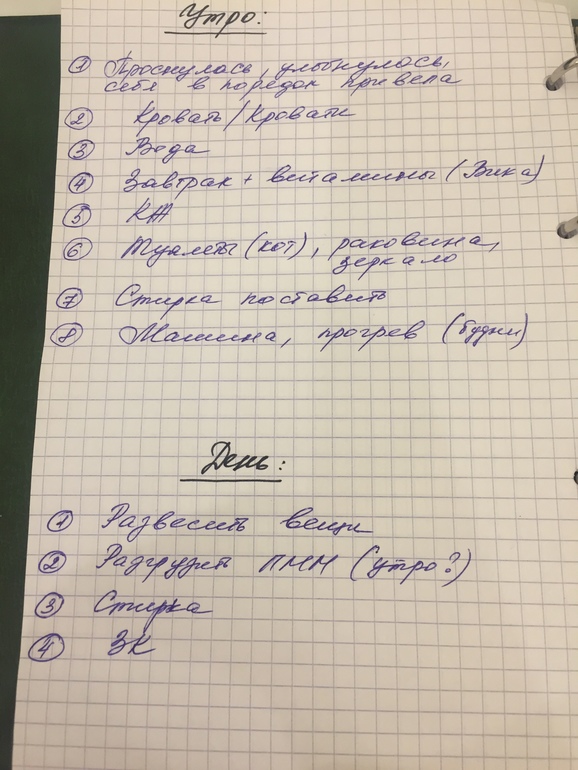 Утро:
1 Проснулась, улыбнулась,
себя в порядок привела
2 Кровать/Кровати
3 Вода
4 Завтрак + витамины (Вика)
5 КЖ
6 Туалеты (кот), раковина,
зеркало
7 Стирка поставить
8 Машина, прогрев (будни)
День:
1 Развесить вещи
2 Разгрузить ПММ (утро?)
3 Стирка
4 ЗК